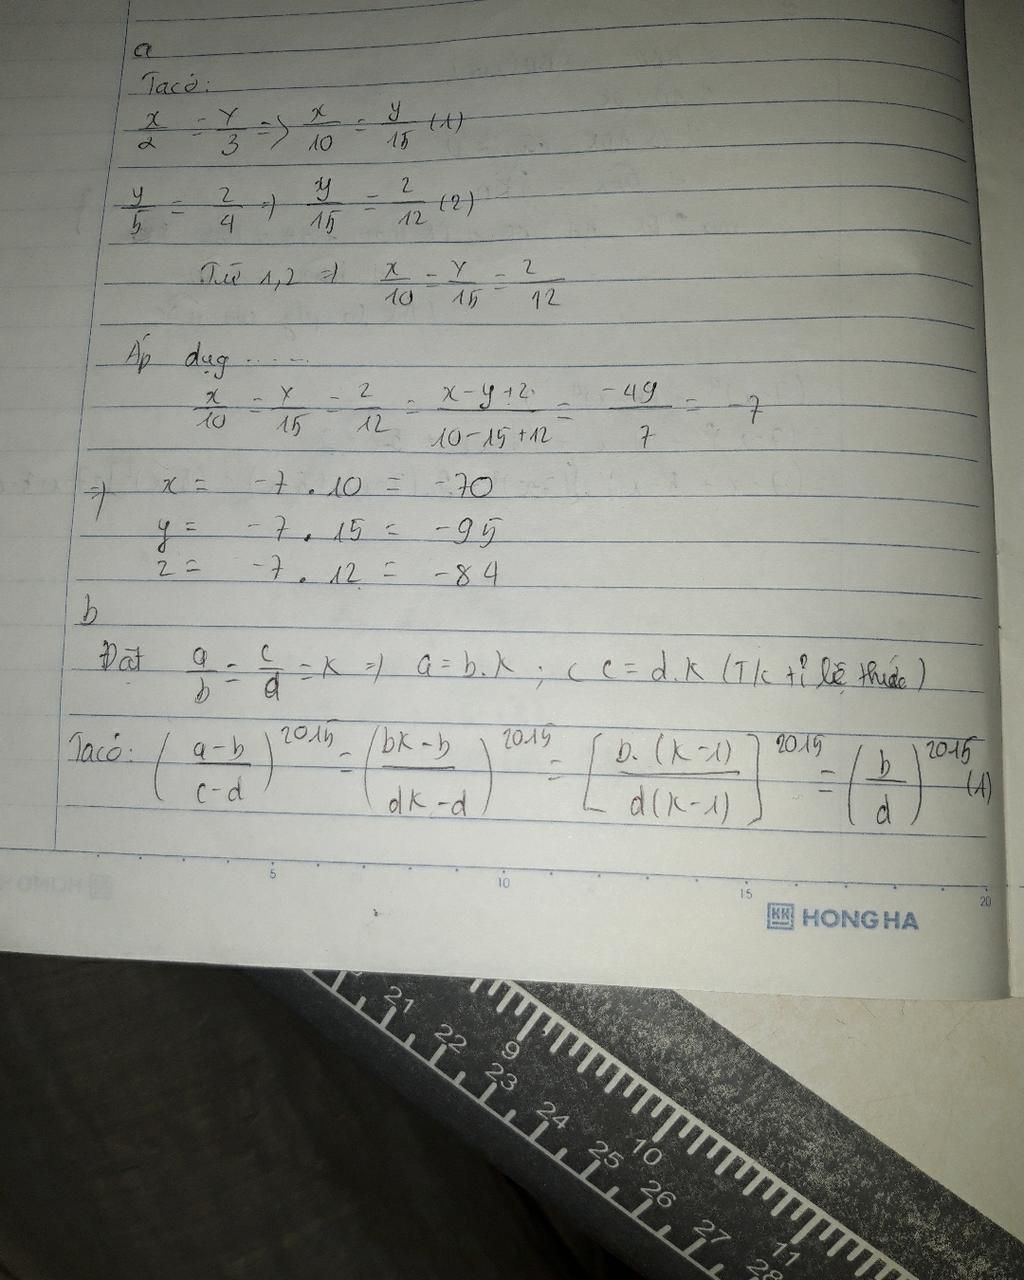 a
Ta có:
x/2 = y/3 => x/10 = y/15 (1)
y/5 = z/4 => y/15 = z/12 (2)
Từ 1,2 => x/10 = y/15 = z/12
Áp dụg ......
x/10 = y/15 = z/12 = x-y+z/10-15+12 = -49/7 = -7
=> x = -7 . 10 = -70
y = -7 . 15 = -95
z = -7 . 12 = -84
b
Đặt a/b = c/d = k => a = b.k ; c c = d.k (T/c tỉ lệ thức)
Ta có: (a-b/c-d)^2015 = (bk-b/dk-d)^2015 = [b.(k-1)/d(k-1)]^2015 = (b/d)^2015 (1)
5 10 15 20
KK HONG HA
21 22 23 24 25 26 27 28
9 10 11